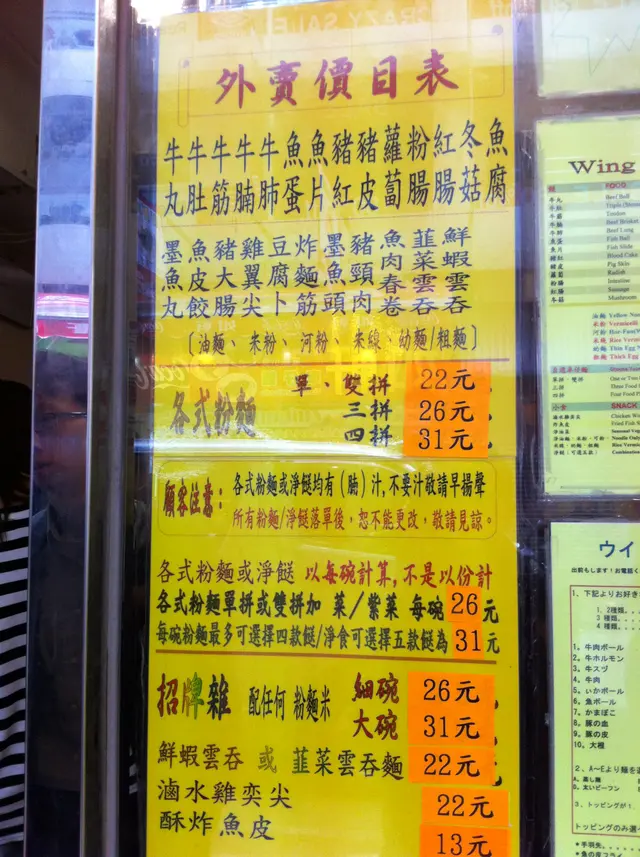 外賣價目表
牛牛牛牛牛魚魚豬豬蘿粉紅冬魚
丸肚筋腩肺蛋片紅皮蔔腸腸菇腐
墨魚豬雞豆炸墨豬魚韮鮮
魚皮大翼腐麵魚頸肉菜蝦
丸餃腸尖卜筋頭肉春雲雲
卷吞吞
〔油麵、米粉、河粉、米線、幼麵/粗麵〕
各式粉麵
單、雙拼 22元
三拼 26元
四拼 31元
顧客注意：
各式粉麵或淨餸均有(腩)汁,不要汁敬請早揚聲
所有粉麵/淨餸落單後，恕不能更改，敬請見諒。
各式粉麵或淨餸 以每碗計算,不是以份計
各式粉麵單拼或雙拼加 菜/紫菜 每碗26元
每碗粉麵最多可選擇四款餸/淨食可選擇五款餸為31元
招牌雜 配任何 粉麵米 細碗 26元
大碗 31元
鮮蝦雲吞 或 韮菜雲吞麵 22元
滷水雞亦尖 22元
酥炸魚皮 13元
Wing
FOOD
牛丸 Beef Ball
Tendon
Beef Brisket
Beef Lung
Fish Ball
Fish Slide
Blood Cake
Pig Skin
Radish
Intestine
Sausage
Mushroom
SNACK
ウイ
1、下記よりお好き
1. 2種類
3 種類
4 種類
1。牛肉ボール
2。牛ホルモン
3。牛スヅ
4。牛肉
5。いかボール
6。魚ボール
7。かまぼこ
8。豚の血
9。豚の皮
10。大根
2、A～Eより麺を選
A。蒸し麺
D。太いビーフン
3、トッピングが1
トッピングのみ選
★手羽先
★魚の皮フライ